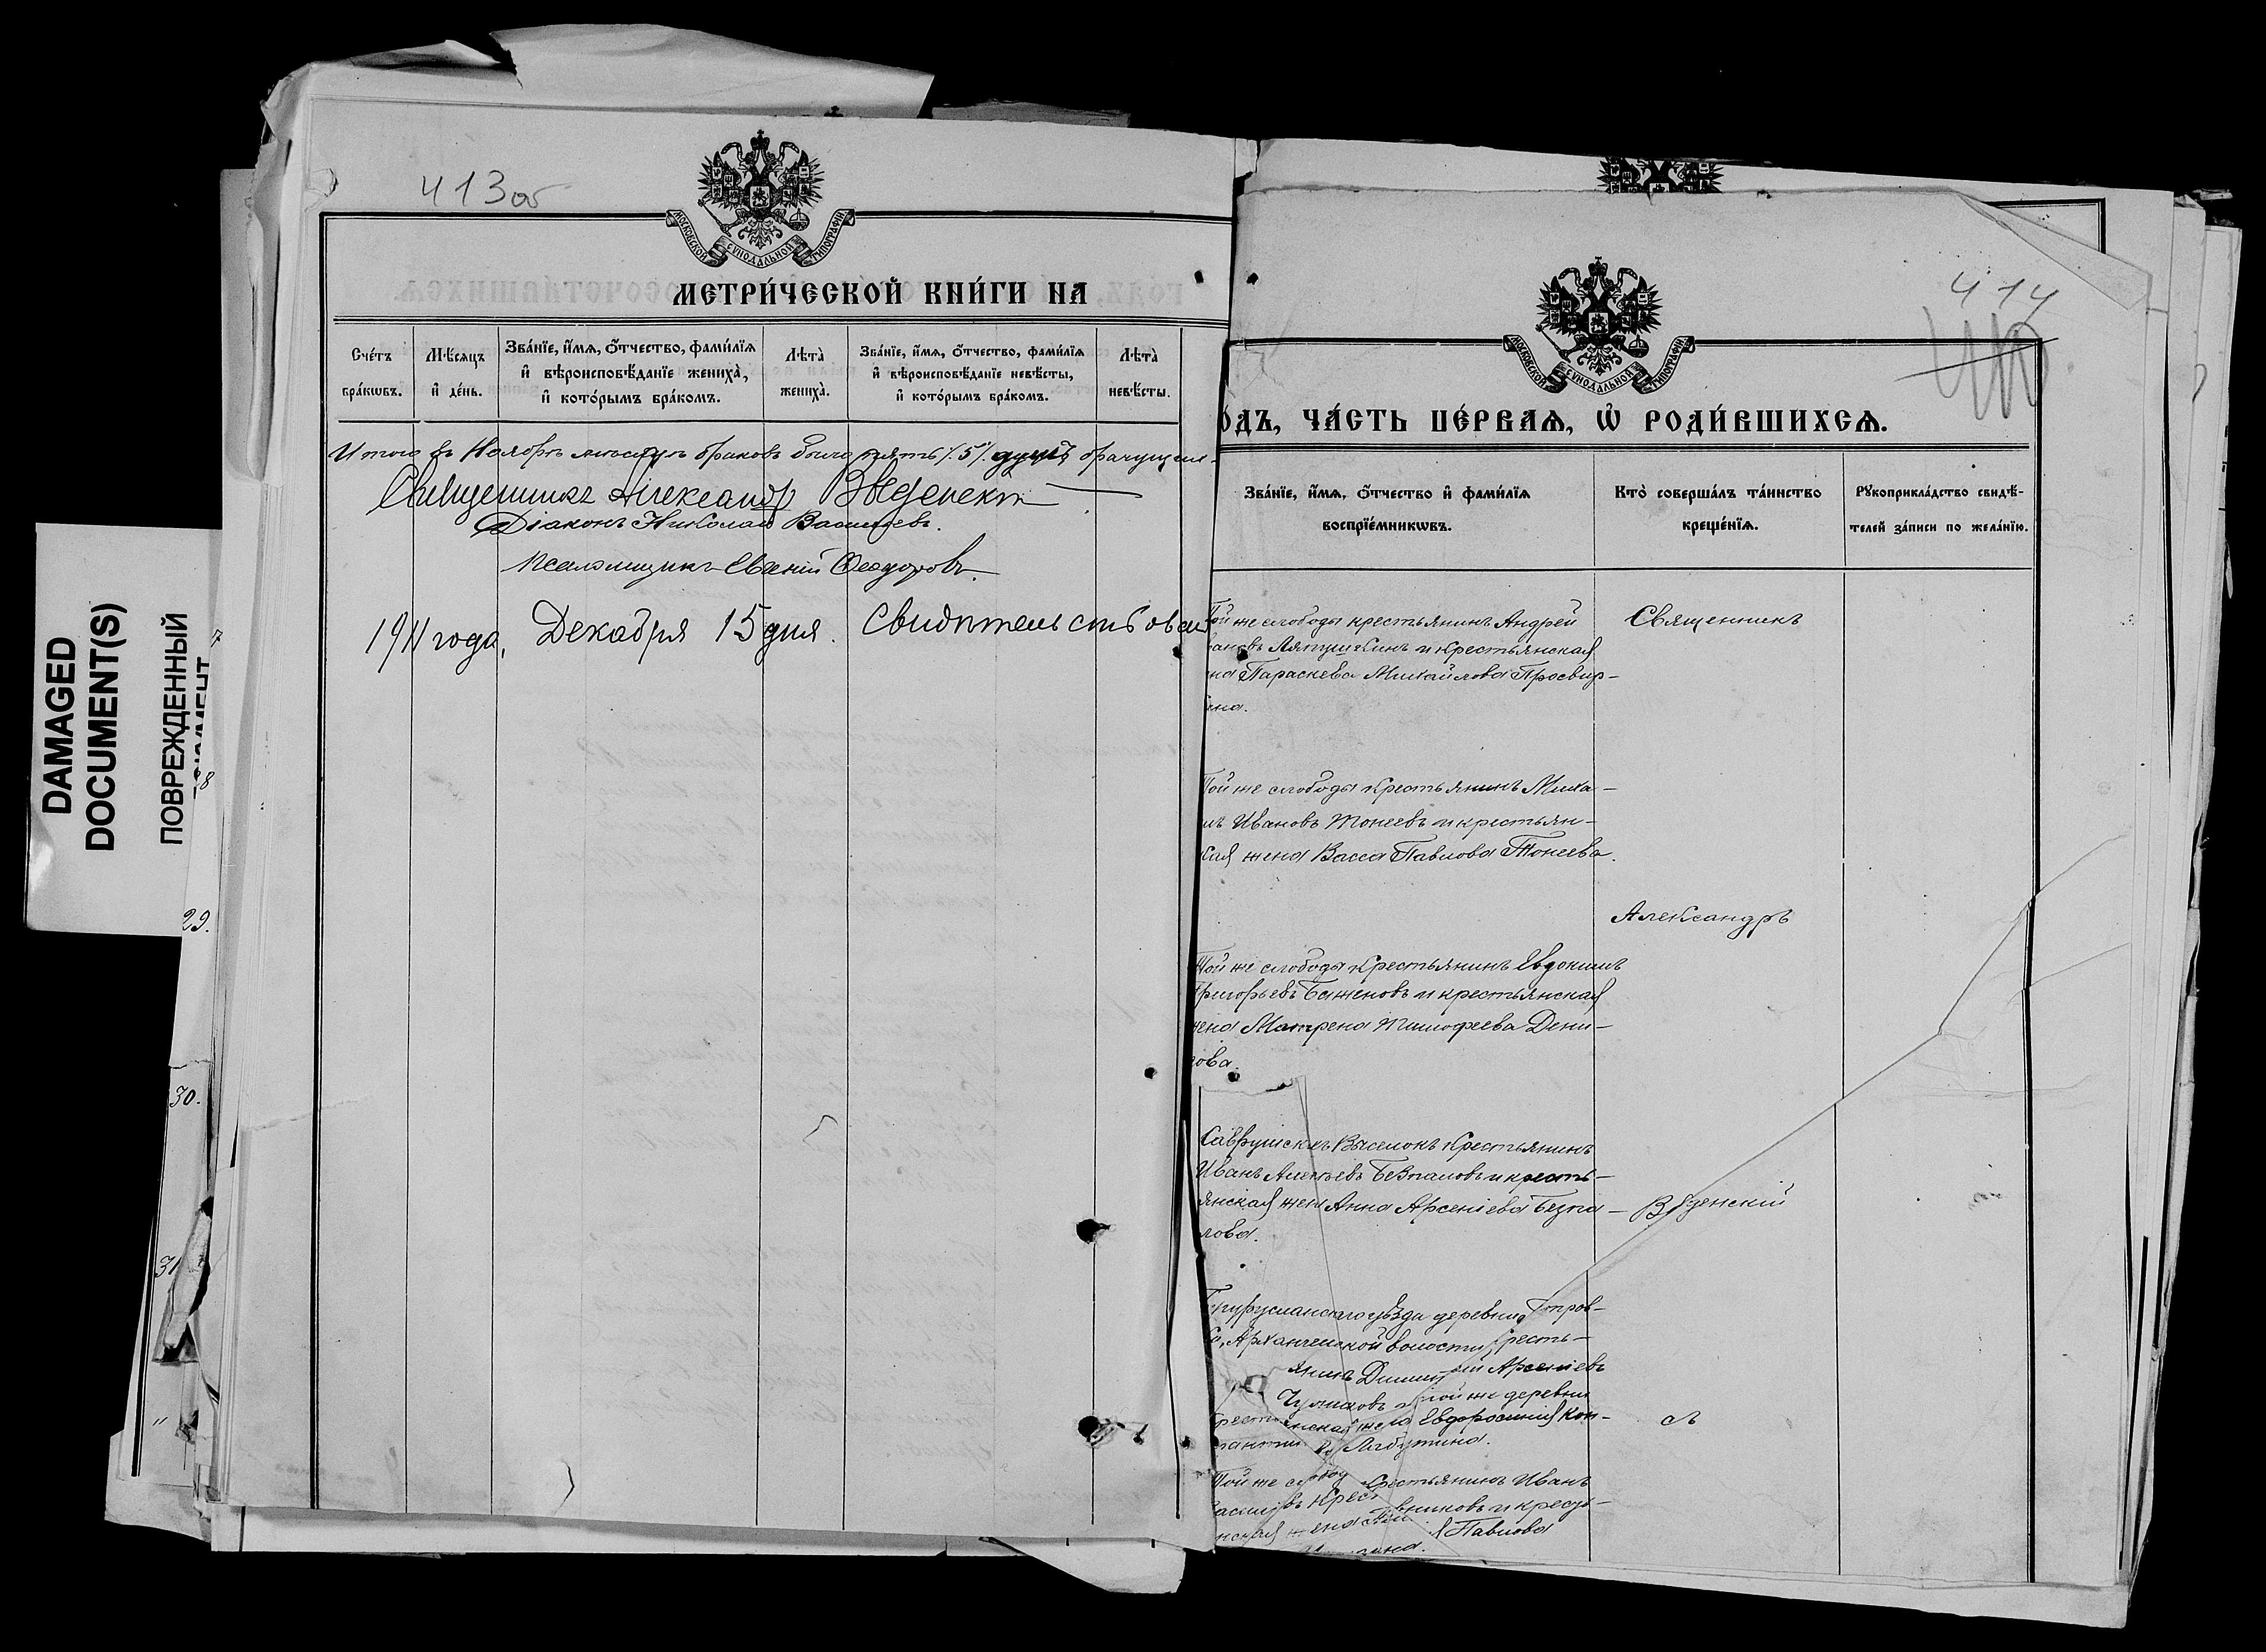 413об
МОСКОВСКОЙ СѴНОДАЛЬНОЙ ТИПОГРАФІИ
МЕТРИ́ЧЕСКОЙ КНИ́ГИ НА
Сче́тъ бра́кѡвъ.
Мѣ́сяцъ и҆ де́нь.
Зва́нїе, и҆́мѧ, ѻ҆́тчество, фами́лїѧ и҆ вѣроисповѣ́данїе жениха̀, и҆ кото́рымъ бра́комъ.
Лѣта̀ жениха̀.
Зва́нїе, и҆́мѧ, ѻ҆́тчество, фами́лїѧ и҆ вѣроисповѣ́данїе невѣ́сты, и҆ кото́рымъ бра́комъ.
Лѣта̀ невѣ́сты.
Итого въ Ноябрѣ мѣсяцѣ браковъ было пять /5/.
Священникъ Александръ Введенскій
Діаконъ Николай Васильевъ.
Псаломщикъ Евгеній Ѳеодоровъ.
1911 года, Декабря 15 дня. Свидѣтельствовалъ
DAMAGED
DOCUMENT(S)
ПОВРЕЖДЕННЫЙ
29.
30.
31
414
МОСКОВСКОЙ СѴНОДАЛЬНОЙ ТИПОГРАФІИ
ОДЪ, ЧА́СТЬ ПЕ́РВАѦ, Ѡ҆ РОДИ́ВШИХСѦ.
Зва́нїе, и҆́мѧ, ѻ҆́тчество и҆ фами́лїѧ воспрїе́мникѡвъ.
Кто̀ соверша́лъ та́инство креще́нїѧ.
Рꙋкоприкла́дство свидѣ́телей за́писи по жела́нїю.
Той же слободы крестьянинъ Андрей
Ляпушкинъ и крестьянская
на Параскева Михайлова Просвир-
ина.
Священникъ
Той же слободы крестьянинъ Миха-
илъ Ивановъ Тонеевъ и крестьян-
кая жена Васса Павлова Тонеева.
Александръ
Той же слободы крестьянинъ Евдокимъ
Григорьевъ Баженовъ и крестьянская
жена Матрена Тимофеева Дени-
сова.
Выселокъ крестьянинъ
Иванъ Безпаловъ и кресть-
янская жена Анна Арсеніева Безпа-
лова.
Введенскій
уѣзда деревни
Архангельской волости, кресть-
янинъ Арсеніевъ
той же деревни
жена Евдросинія Кон-
Лабутина.
съ
Той же слобод крестьянинъ Иванъ
и кресть-
жена Павлова